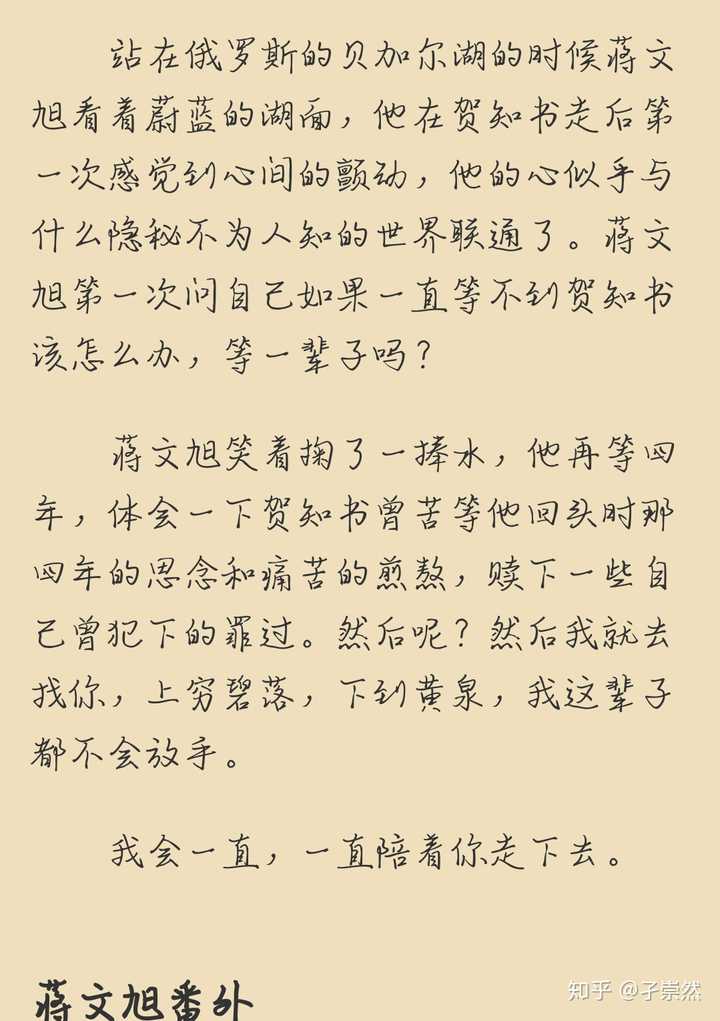 站在俄罗斯的贝加尔湖的时候蒋文
旭看着蔚蓝的湖面，他在贺知书走后第
一次感觉到心间的颤动，他的心似乎与
什么隐秘不为人知的世界联通了。蒋文
旭第一次问自己如果一直等不到贺知书
该怎么办，等一辈子吗？
蒋文旭笑着掬了一捧水，他再等四
年，体会一下贺知书曾苦等他回头时那
四年的思念和痛苦的煎熬，赎下一些自
己曾犯下的罪过。然后呢？然后我就去
找你，上穷碧落，下到黄泉，我这辈子
都不会放手。
我会一直，一直陪着你走下去。
蒋文旭番外
知乎 @孑崇然